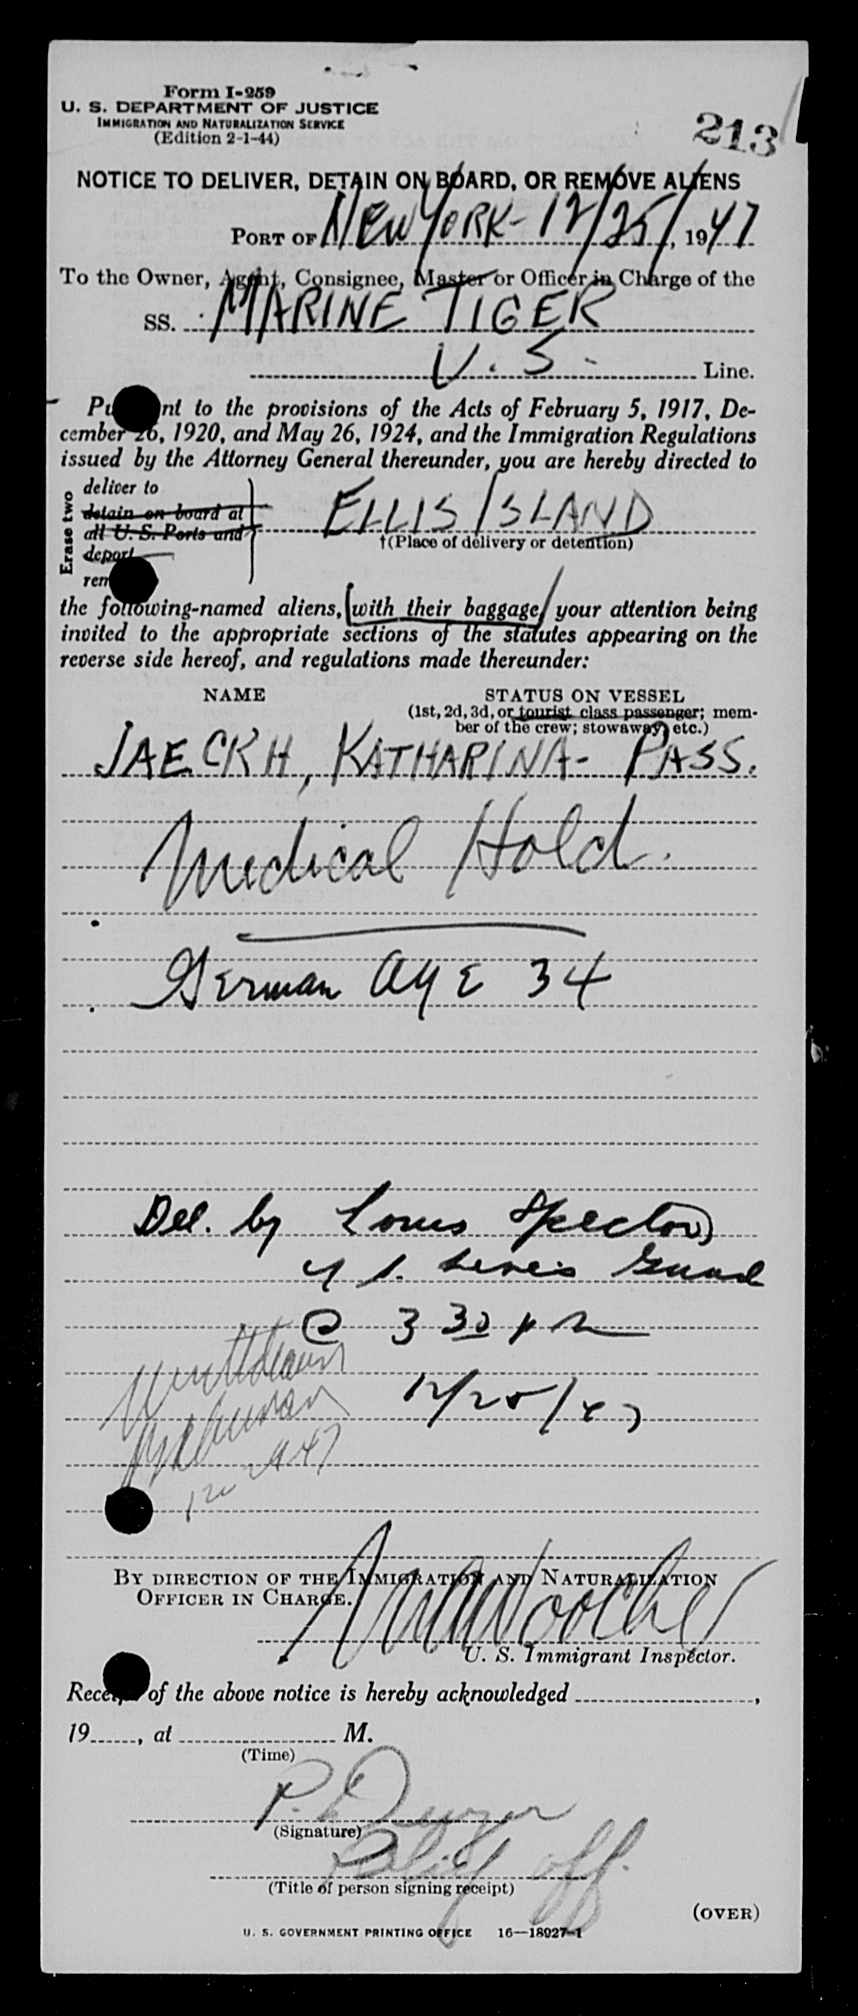 Form I-259
U. S. DEPARTMENT OF JUSTICE
IMMIGRATION AND NATURALIZATION SERVICE
(Edition 2-1-44)
213
NOTICE TO DELIVER, DETAIN ON BOARD, OR REMOVE ALIENS
PORT OF NEW YORK - 12/25/, 1947
To the Owner, Agent, Consignee, Master or Officer in Charge of the
SS. MARINE TIGER
U. S. - Line.
Pu nt to the provisions of the Acts of February 5, 1917, De-
cember 26, 1920, and May 26, 1924, and the Immigration Regulations
issued by the Attorney General thereunder, you are hereby directed to
Erase two
deliver to
detain on board at
all U. S. Ports and
deport
rem
ELLIS ISLAND
†(Place of delivery or detention)
the following-named aliens, with their baggage, your attention being
invited to the appropriate sections of the statutes appearing on the
reverse side hereof, and regulations made thereunder:
NAME STATUS ON VESSEL
(1st, 2d, 3d, or tourist class passenger; mem-
ber of the crew; stowaway, etc.)
JAECKH, KATHARINA - PASS.
Medical Hold.
German AGE 34
Del. by Louis Spector
Guard
@ 3 30 pm
12/25/47
BY DIRECTION OF THE IMMIGRATION AND NATURALIZATION
OFFICER IN CHARGE.
U. S. Immigrant Inspector.
Receipt of the above notice is hereby acknowledged ,
19 , at M.
(Time)
P.
(Signature)
off.
(Title of person signing receipt)
(OVER)
U. S. GOVERNMENT PRINTING OFFICE 16—18927-1